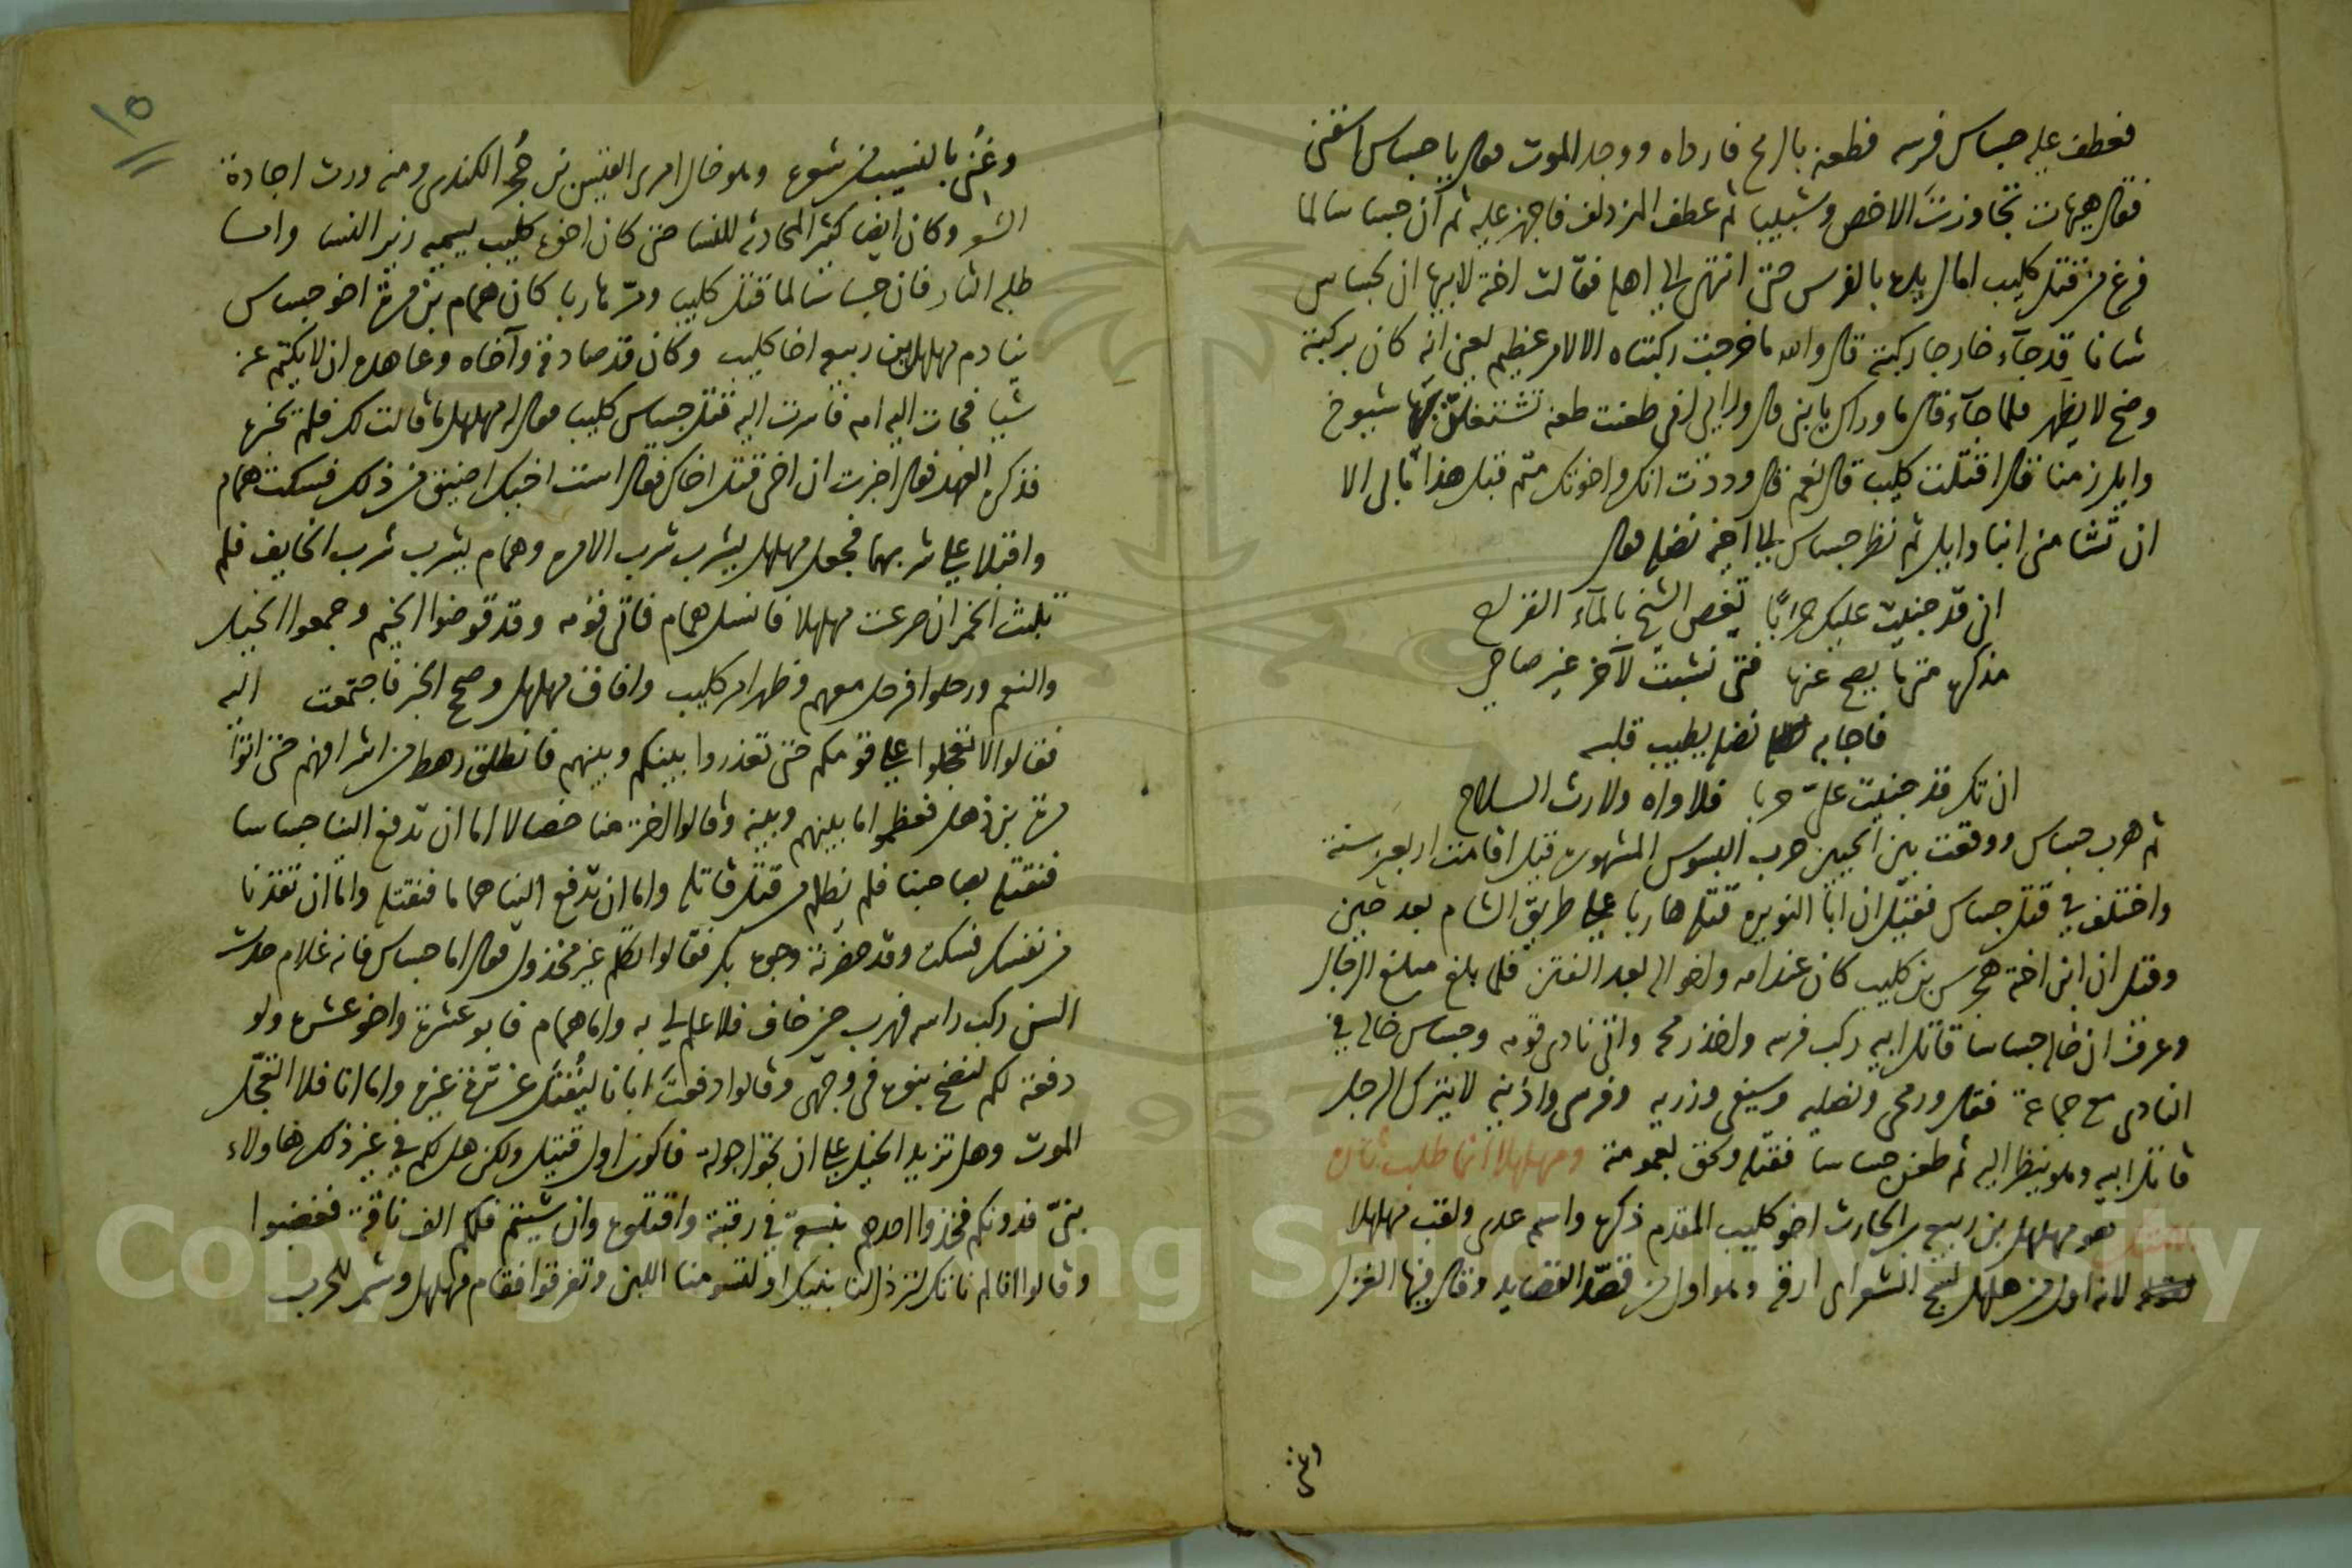 فعطف عليه جساس فرسه فطعنه بالرمح فارداه ووجد الموت فقال يا جساس اسقنى
فقال هيهات تجاوزت الاخص وشبيبا ثم عطف المزدلف فاجهز عليه ثم ان جساسا لما
فرغ من قتل كليب امال يده بالفرس حتى انتهى الى اهله فقالت اخته لابيها ان لجساس
شانا قد جآء خارجا ركبته قال والله ما خرجت ركبتاه الا لامر عظيم يعنى انه كان بركبته
وضح لا يظهر فلما جآء قال ما وراك يا بنى قال وراى انى طعنت طعنه تشتغلن بها شيوخ
وايل زمنا قال اقتلت كليب قال نعم قال وددت انك واخوتك متم قبل هذا ما بى الا
ان تتشامنى ابنا وايل ثم نظر جساس الى اخيه نضله فقال
انى قد جنيت عليك حربًا تغص الشيخ بالمآء القراح
مذكره متى ما يصح عنها فتى نشبت لآخر غير صاحى
فاجابه نضله يطيب قلبه
ان تك قد جنيت علىّ حربا فلا واه ولا رث السلاح
ثم هرب جساس ووقعت بين الحيين حرب البسوس المشهوره قيل اقامت اربعين سنة
واختلف في قتل جساس فقيل ان ابا النويره قتله هاربا على طريق الشام بعد حين
وقيل ان ابن اخته هجرس بن كليب كان عند امه واخواله بعد الفتن فلما بلغ مبلغ الرجال
وعرف ان خاله جساسا قاتل ابيه ركب فرسه واخذ رمحه واتى نادى قومه وجساس خاله في
النادى مع جماعة فقال ورمحى ونصليه وسيفى وزريه وفرسى واذنيه لا يترك الرجل
قاتل ابيه وهو ينظر اليه ثم طعن جساسا فقتله ولحق بعمومته ومهلهلا انما طلب ثاره
هو مهلهل بن ربيع بن الحارث اخو كليب المقدم ذكره واسمه عدى ولقب مهلهلا
لانه اول من هلهل نسج الشعر اى ارقه وهو اول من قصّد القصايد وقال فيها الغزل
وعُنى بالنسيب فى شعره وهو خال امرى القيس بن حُجر الكندى ومنه ورث اجادة
الشعر وكان ايضا كثير المحادثه للنسا حتى كان اخوه كليب يسميه زير النسا واما
طلبه الثار فان جساسا لما قتل كليب ومرّ هاربا كان همام بن مرة اخو جساس
ينادم مهلهل بن ربيعه اخا كليب وكان قد صادقه وآخاه وعاهده ان لا يكتم عنه
شيا فجات اليه امه فاسرت اليه قتل جساس كليب فقال له مهلهل ما قالت لك فلم يخبره
فذكره العهد فقال اخبرت ان اخى قتل اخاك فقال است اخيك اضيق من ذلك فسكت همام
واقبلا على شربهما فجعل مهلهل يشرب شرب الامن وهمام يشرب شرب الخايف فلم
تلبث الخمر ان صرعت مهلهلا فانسل همام فاتى قومه وقد قوضوا الخيم وجمعوا الخيل
والنعم ورحلوا فرحل معهم وظهر امر كليب وافاق مهلهل وصح الخبر فاجتمعت اليه
فقالوا لا تعجلوا على قومكم حتى تعذروا بينكم وبينهم فانطلق رهط من اشرافهم حتى اتوا
مرة بن ذهل فعظموا ما بينهم وبينه وقالوا اختر منا خصالا اما ان تدفع الينا جساسا
فنقتله بصاحبنا فلم يظلم من قتل قاتله واما ان تدفع الينا هماما فنقتله واما ان تقدنا
من نفسك فسكت وقد حضرته وجوه بكر فقالوا تكلم غير مخذول فقال اما جساس فانه غلام حدث
السن ركب راسه فهرب حين خاف فلا علم لى به واما همام فابو عشرة واخو عشره ولو
دفعته لكم لصح بنوه فى وجهى وقالوا دفعت ابانا ليُقتل عن ثرة غيره واما انا فلا اتعجّل
الموت وهل تزيد الخيل على ان تجول جولة فاكون اول قتيل ولكن هل لكم في غير ذلك هاولاء
بنىّ فدونكم فخذوا احدهم بنسعة في رقبته واقتلوه وان شيتم فلكم الف ناقة فغضبوا
وقالوا انا لم ناتك لترذل لنا بنيك او لتسومنا اللبن وتفرقوا فقام مهلهل وشمر للحرب